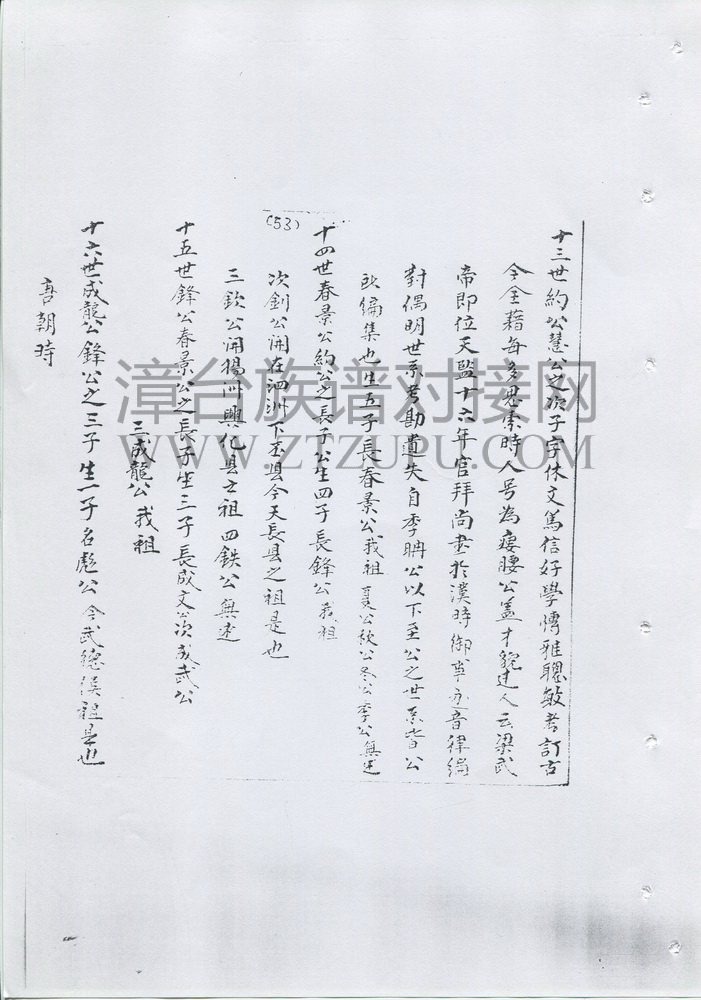 十三世約公慧公之次子字休文篤信好學愽雅聰敏考訂古
今全藉每多思索時人号為瘦腰公蓋才能过人云梁武
帝即位天監十六年官拜尚書於漢時御
對偶明世系考勘遺失自季聃公以下至公之世系皆公
欧编集也生五子長春景公我祖 夏公秋公冬公季公無述
(53)
十四世春景公約公之長子公生四子長鋒公我祖
次釗公開在泗洲下玉县今天長县之祖是也
三欽公開揚州興化县之祖 四鉄公無述
十五世鋒公春景公之長子生三子長成文公次成武公
三成龍公我祖
十六世成龍公鋒公之三子生一子名彪公 今武德侯祖是也
唐朝時
漳台族谱对接网
WWW.ZTZUPU.COM